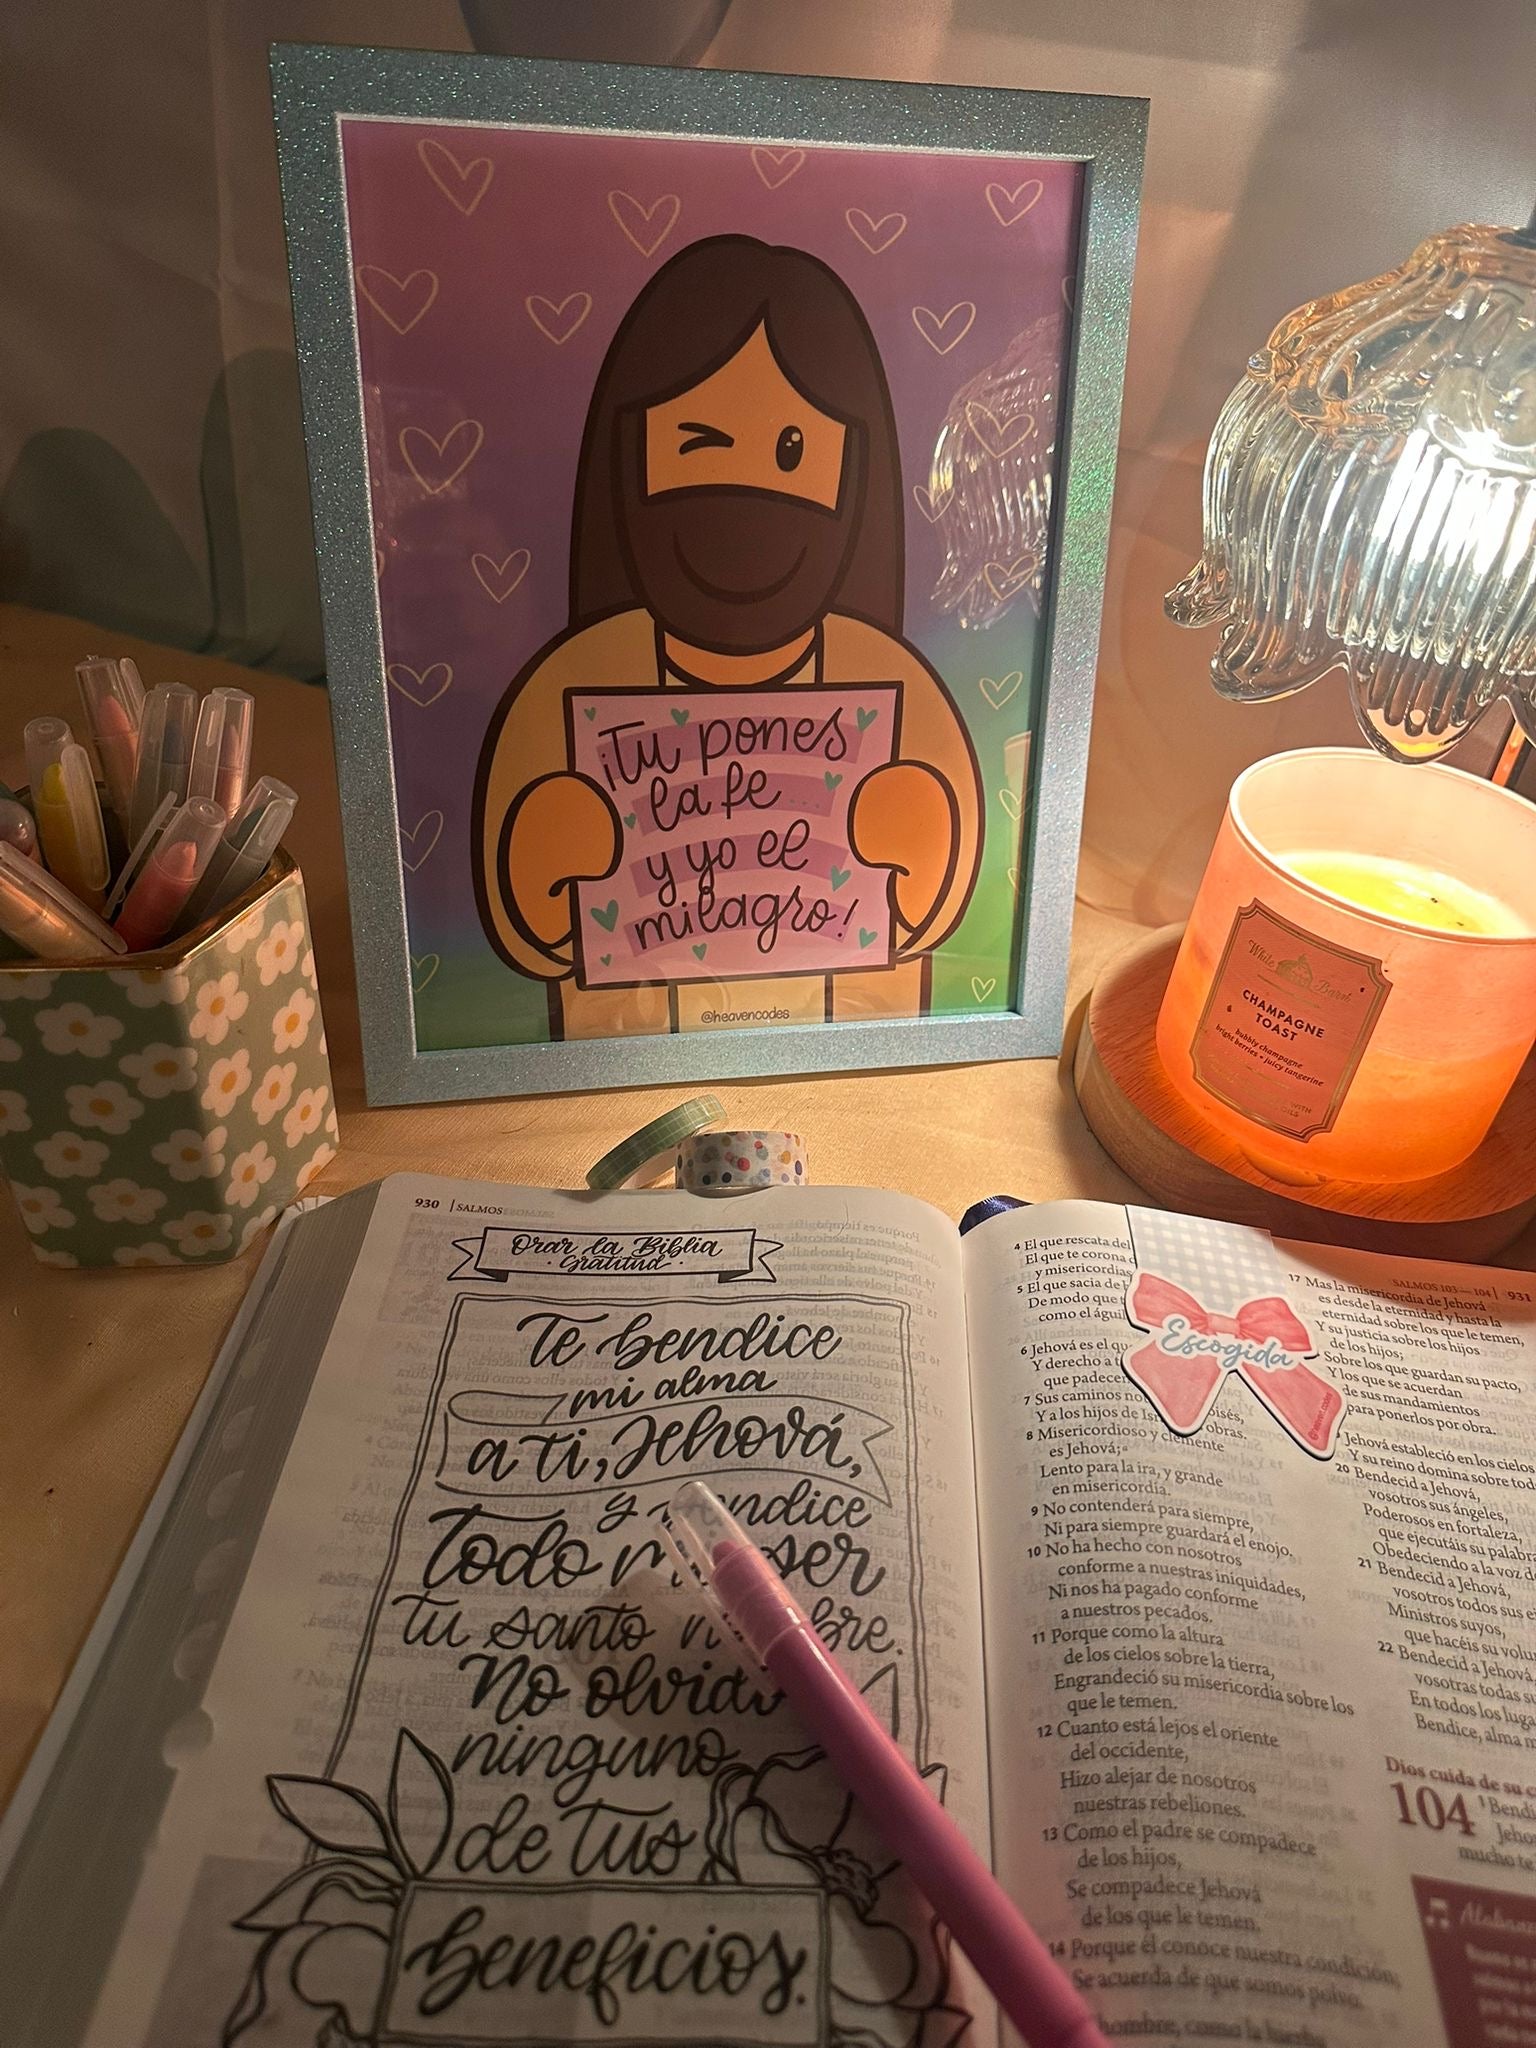 ¡Tu pones
la fe...
y yo el
milagro!
@heavencodes
White Barn
CHAMPAGNE
TOAST
bubbly champagne
bright berries • juicy tangerine
930 | SALMOS
Orar la Biblia
· Gratitud ·
Te bendice
mi alma
a ti, Jehová,
y bendice
todo mi ser
tu santo nombre.
No olvida
ninguno
de tus
beneficios.
4 El que rescata del
El que te corona d
y misericordias
5 El que sacia de b
De modo que t
como el águil
6 Jehová es el qu
Y derecho a t
que padecen
7 Sus caminos no
Y a los hijos de Isr obras.
8 Misericordioso y clemente
es Jehová;
Lento para la ira, y grande
en misericordia.
9 No contenderá para siempre,
Ni para siempre guardará el enojo.
10 No ha hecho con nosotros
conforme a nuestras iniquidades,
Ni nos ha pagado conforme
a nuestros pecados.
11 Porque como la altura
de los cielos sobre la tierra,
Engrandeció su misericordia sobre los
que le temen.
12 Cuanto está lejos el oriente
del occidente,
Hizo alejar de nosotros
nuestras rebeliones.
13 Como el padre se compadece
de los hijos,
Se compadece Jehová
de los que le temen.
14 Porque él conoce nuestra condición;
Se acuerda de que somos polvo.
hombre, como la hierba
Escogida
SALMOS 103—104 | 931
17 Mas la misericordia de Jehová
es desde la eternidad y hasta la
eternidad sobre los que le temen,
Y su justicia sobre los hijos
de los hijos;
Sobre los que guardan su pacto,
Y los que se acuerdan
de sus mandamientos
para ponerlos por obra.
Jehová estableció en los cielos
Y su reino domina sobre tod
20 Bendecid a Jehová,
vosotros sus ángeles,
Poderosos en fortaleza,
que ejecutáis su palabra
Obedeciendo a la voz de
21 Bendecid a Jehová,
vosotros todos sus e
Ministros suyos,
que hacéis su volun
22 Bendecid a Jehová,
vosotras todas su
En todos los luga
Bendice, alma m
Dios cuida de su c
104 1 Bendi
Jeho
mucho te